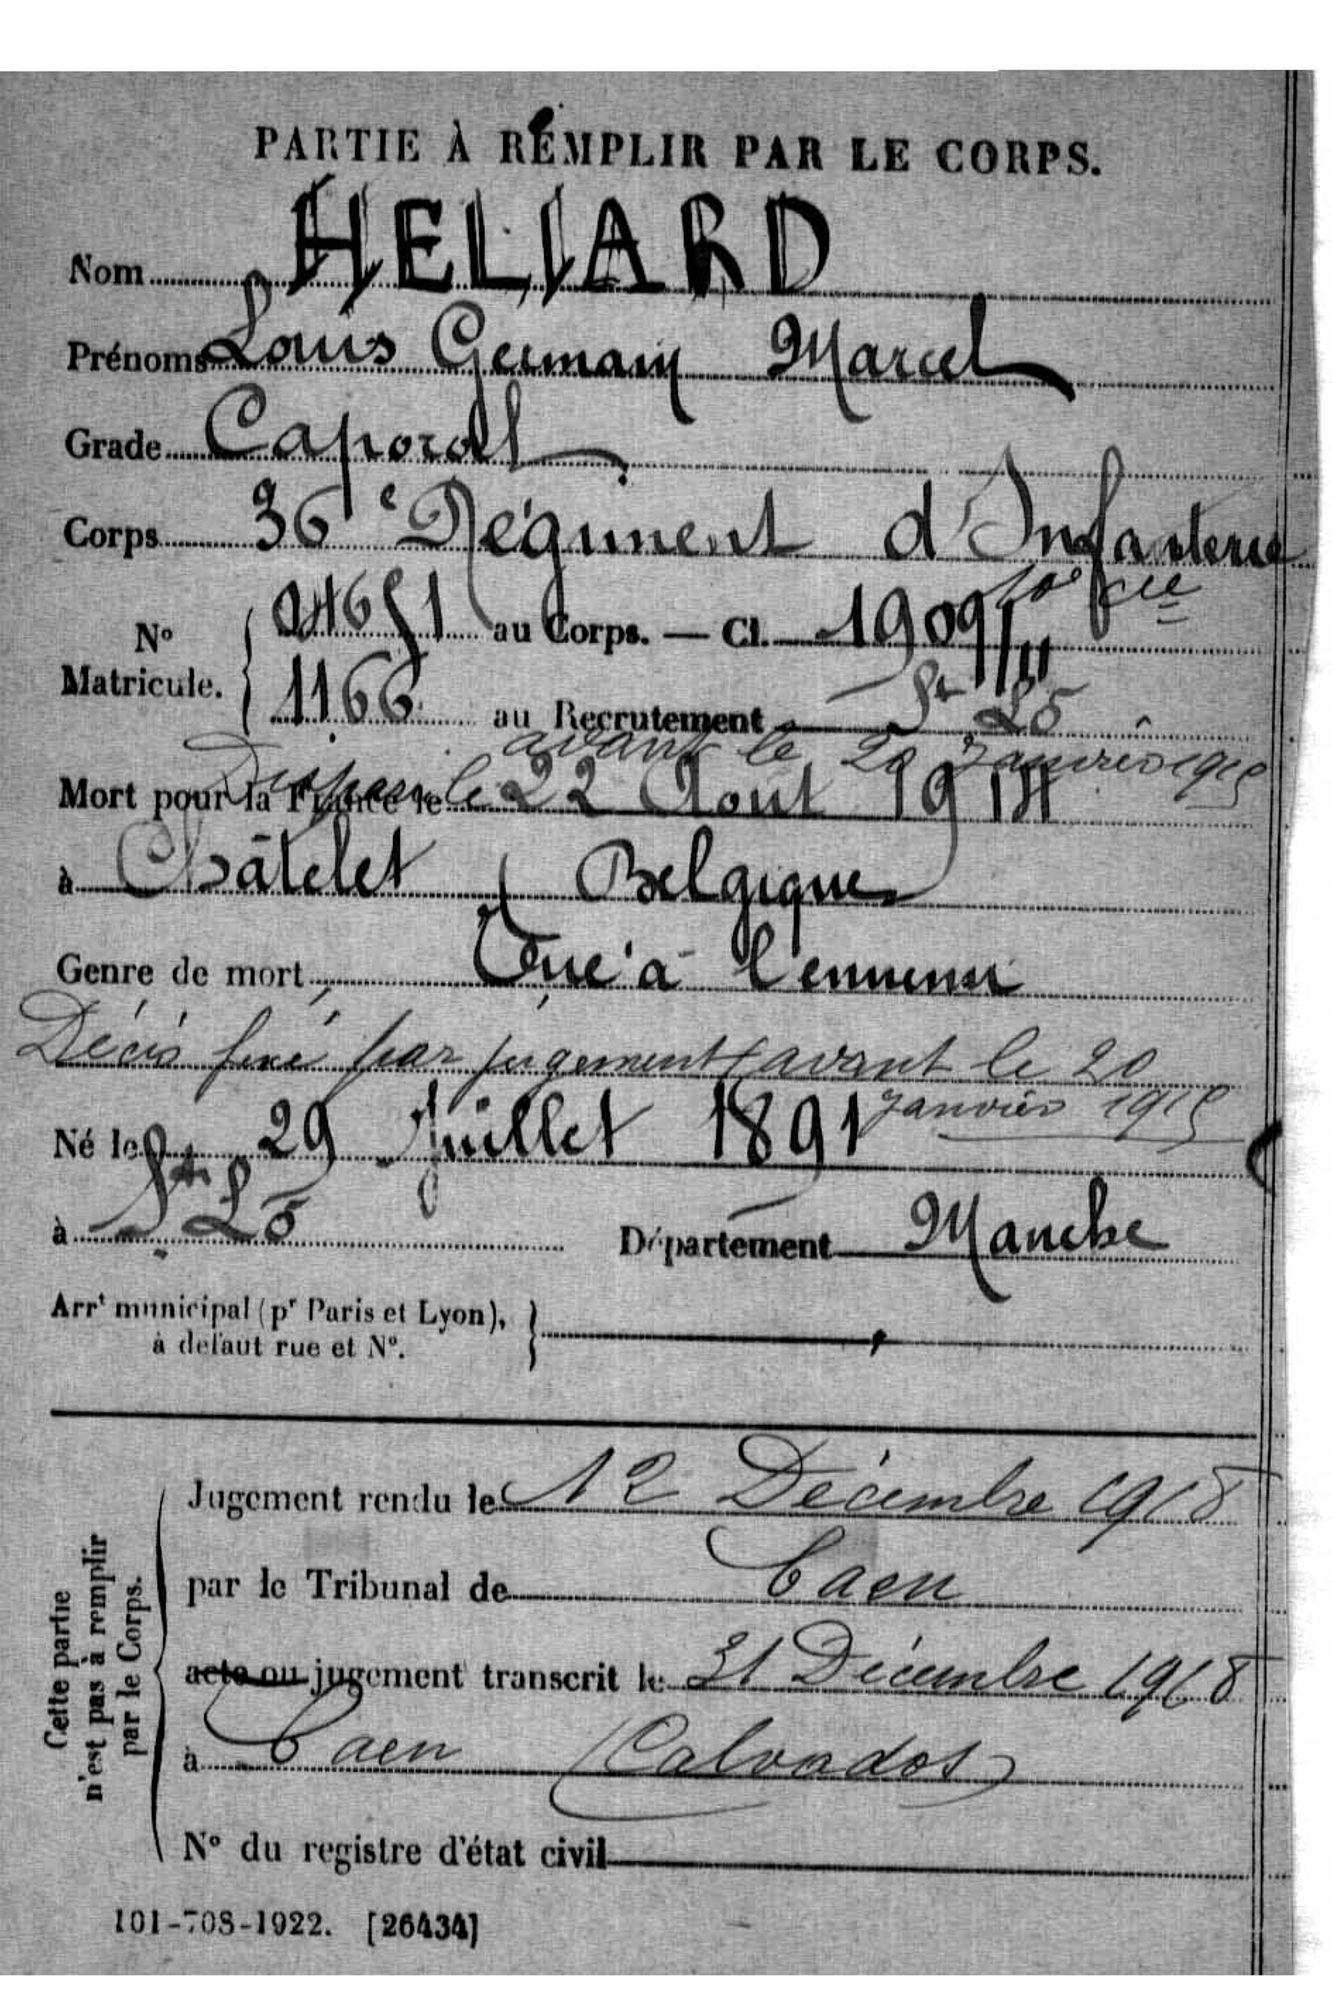 PARTIE À REMPLIR PAR LE CORPS.
Nom HELIARD
Prénoms Louis Germain Marcel
Grade Caporal
Corps 36e Régiment d'Infanterie
10e Cie
No Matricule. { 04651 au Corps. — Cl. 1909/11
1166 au Recrutement St Lô
avant le 20 Janvier 1915
Mort pour la France le Disparu le 22 Aout 1914
à Châtelet Belgique
Genre de mort Tué à l'ennemi
Décès fixé par jugement avant le 20
Janvier 1915
Né le 29 Juillet 1891
à St Lô Département Manche
Arrt municipal (pr Paris et Lyon),
à défaut rue et No.
Cette partie
n'est pas à remplir
par le Corps.
Jugement rendu le 12 Décembre 1918
par le Tribunal de Caen
acte ou jugement transcrit le 31 Décembre 1918
à Caen (Calvados)
No du registre d'état civil
101-708-1922. [26434]